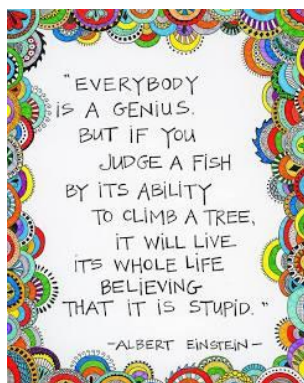 "EVERYBODY
IS A GENIUS.
BUT IF YOU
JUDGE A FISH
BY ITS ABILITY
TO CLIMB A TREE,
IT WILL LIVE
ITS WHOLE LIFE
BELIEVING
THAT IT IS STUPID."
-ALBERT EINSTEIN-